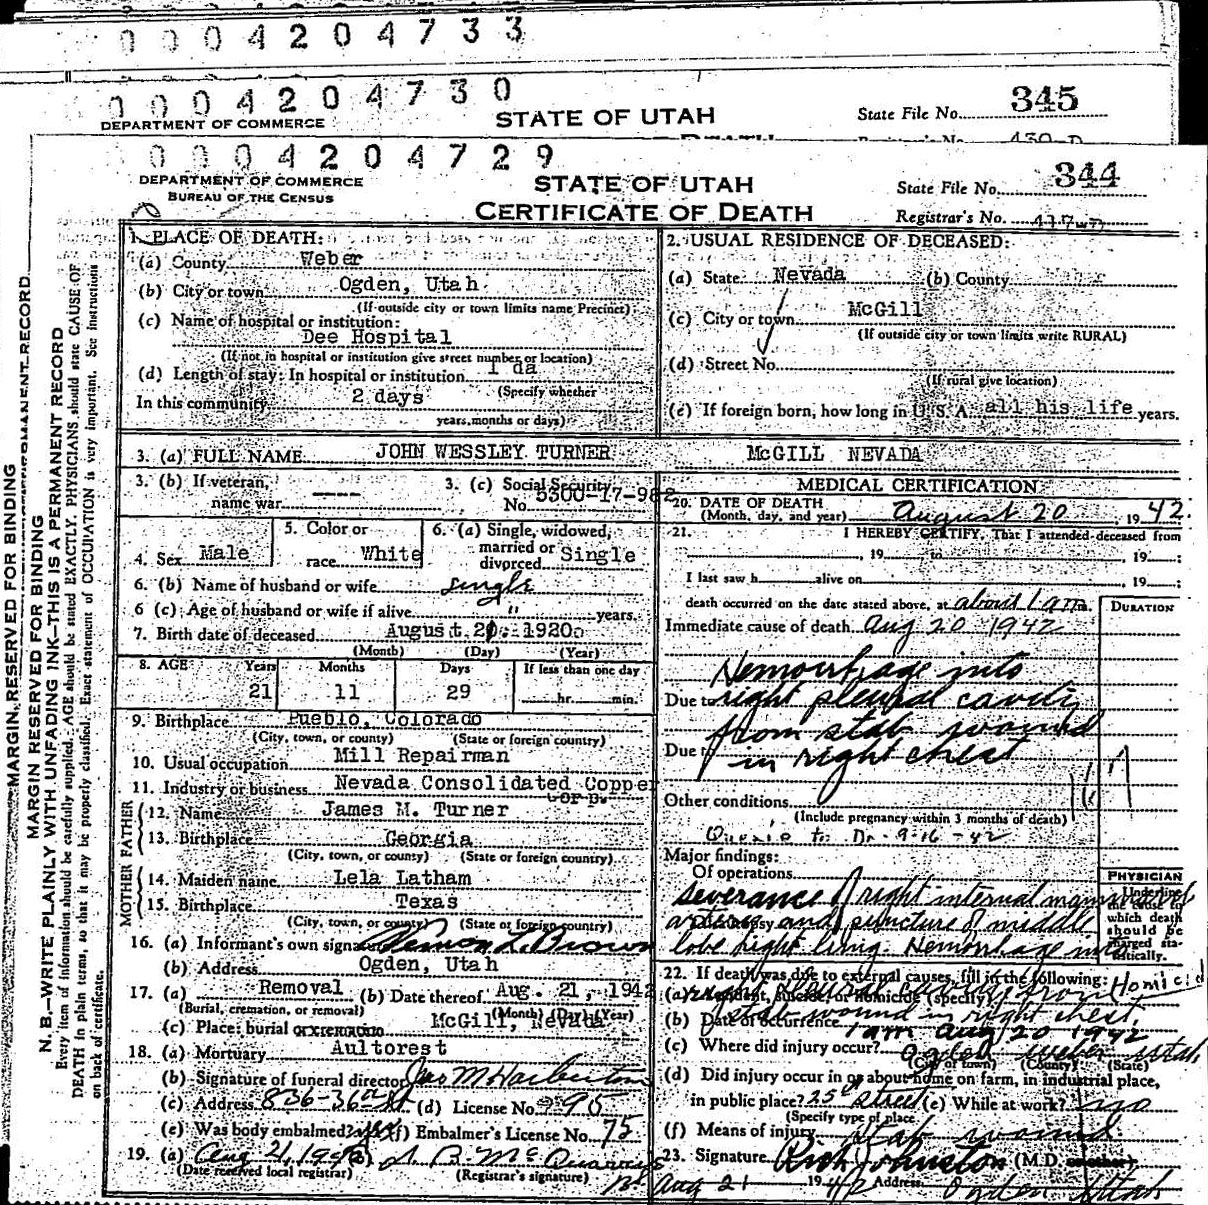 0004204733
0004204730
STATE OF UTAH
State File No. 345
DEPARTMENT OF COMMERCE
Registrar's No. 430-D
0004204729
DEPARTMENT OF COMMERCE
BUREAU OF THE CENSUS
STATE OF UTAH
CERTIFICATE OF DEATH
State File No. 344
Registrar's No.
MARGIN RESERVED FOR BINDING
MARGIN RESERVED FOR BINDING
N. B.—WRITE PLAINLY WITH UNFADING INK—THIS IS A PERMANENT RECORD
Every item of information should be carefully supplied. AGE should be stated EXACTLY. PHYSICIANS should state CAUSE OF
DEATH in plain terms, so that it may be properly classified. Exact statement of OCCUPATION is very important. See instruction
on back of certificate.
1. PLACE OF DEATH:
(a) County Weber
(b) City or town Ogden, Utah
(If outside city or town limits name Precinct)
(c) Name of hospital or institution:
Dee Hospital
(If not in hospital or institution give street number or location)
(d) Length of stay: In hospital or institution 1 da
(Specify whether
In this community 2 days
years, months or days)
2. USUAL RESIDENCE OF DECEASED:
(a) State Nevada (b) County
(c) City or town McGill
(If outside city or town limits write RURAL)
(d) Street No.
(If rural give location)
(e) If foreign born, how long in U. S. A. all his life years.
3. (a) FULL NAME JOHN WESSLEY TURNER McGILL NEVADA
3. (b) If veteran, name war ----
3. (c) Social Security No. 5300-17-982
4. Sex Male
5. Color or race White
6. (a) Single, widowed, married or divorced Single
6. (b) Name of husband or wife single
6 (c) Age of husband or wife if alive " years.
7. Birth date of deceased August 21 1920
(Month) (Day) (Year)
8. AGE Years Months Days If less than one day
21 11 29 hr. min.
9. Birthplace Pueblo, Colorado
(City, town, or county) (State or foreign country)
10. Usual occupation Mill Repairman
11. Industry or business Nevada Consolidated Copper
Corp.
FATHER
12. Name James M. Turner
13. Birthplace Georgia
(City, town, or county) (State or foreign country)
MOTHER
14. Maiden name Lela Latham
15. Birthplace Texas
(City, town, or county) (State or foreign country)
16. (a) Informant's own signature Lemon L. Brown
(b) Address Ogden, Utah
17. (a) Removal (b) Date thereof Aug. 21, 1942
(Burial, cremation, or removal) (Month) (Day) (Year)
(c) Place: burial or cremation McGill, Nevada
18. (a) Mortuary Aultorest
(b) Signature of funeral director
(c) Address 836-36 St (d) License No. 95
(e) Was body embalmed? yes (f) Embalmer's License No. 75
19. (a) Aug 21, 1942 (b)
(Date received local registrar) (Registrar's signature)
MEDICAL CERTIFICATION
20. DATE OF DEATH
(Month, day, and year) August 20, 1942.
21. I HEREBY CERTIFY, That I attended deceased from
, 19 to , 19 ;
I last saw h alive on , 19 ;
death occurred on the date stated above, at about 1 a m.
Immediate cause of death Aug 20 1942
DURATION
Hemorrhage into
Due to right pleural cavity
from stab wound
Due to in right chest
Other conditions
(Include pregnancy within 3 months of death)
to Dr. 9-16-42
Major findings:
Of operations
PHYSICIAN
Underline
cause to
which death
should be
charged sta-
tistically.
severance of right internal mammary
artery and puncture of middle
lobe right lung. Hemorrhage into
right pleural cavity from
stab wound in right chest.
22. If death was due to external causes, fill in the following:
(a) Accident, suicide, or homicide (specify) Homicide
(b) Date of occurrence 1 am Aug 20 1942
(c) Where did injury occur? Ogden Weber Utah
(City or town) (County) (State)
(d) Did injury occur in or about home on farm, in industrial place,
in public place? 25th Street (e) While at work? no
(Specify type of place)
(f) Means of injury stab wound
23. Signature Rich Johnston (M.D.
Aug 21 1942 Address Ogden Utah